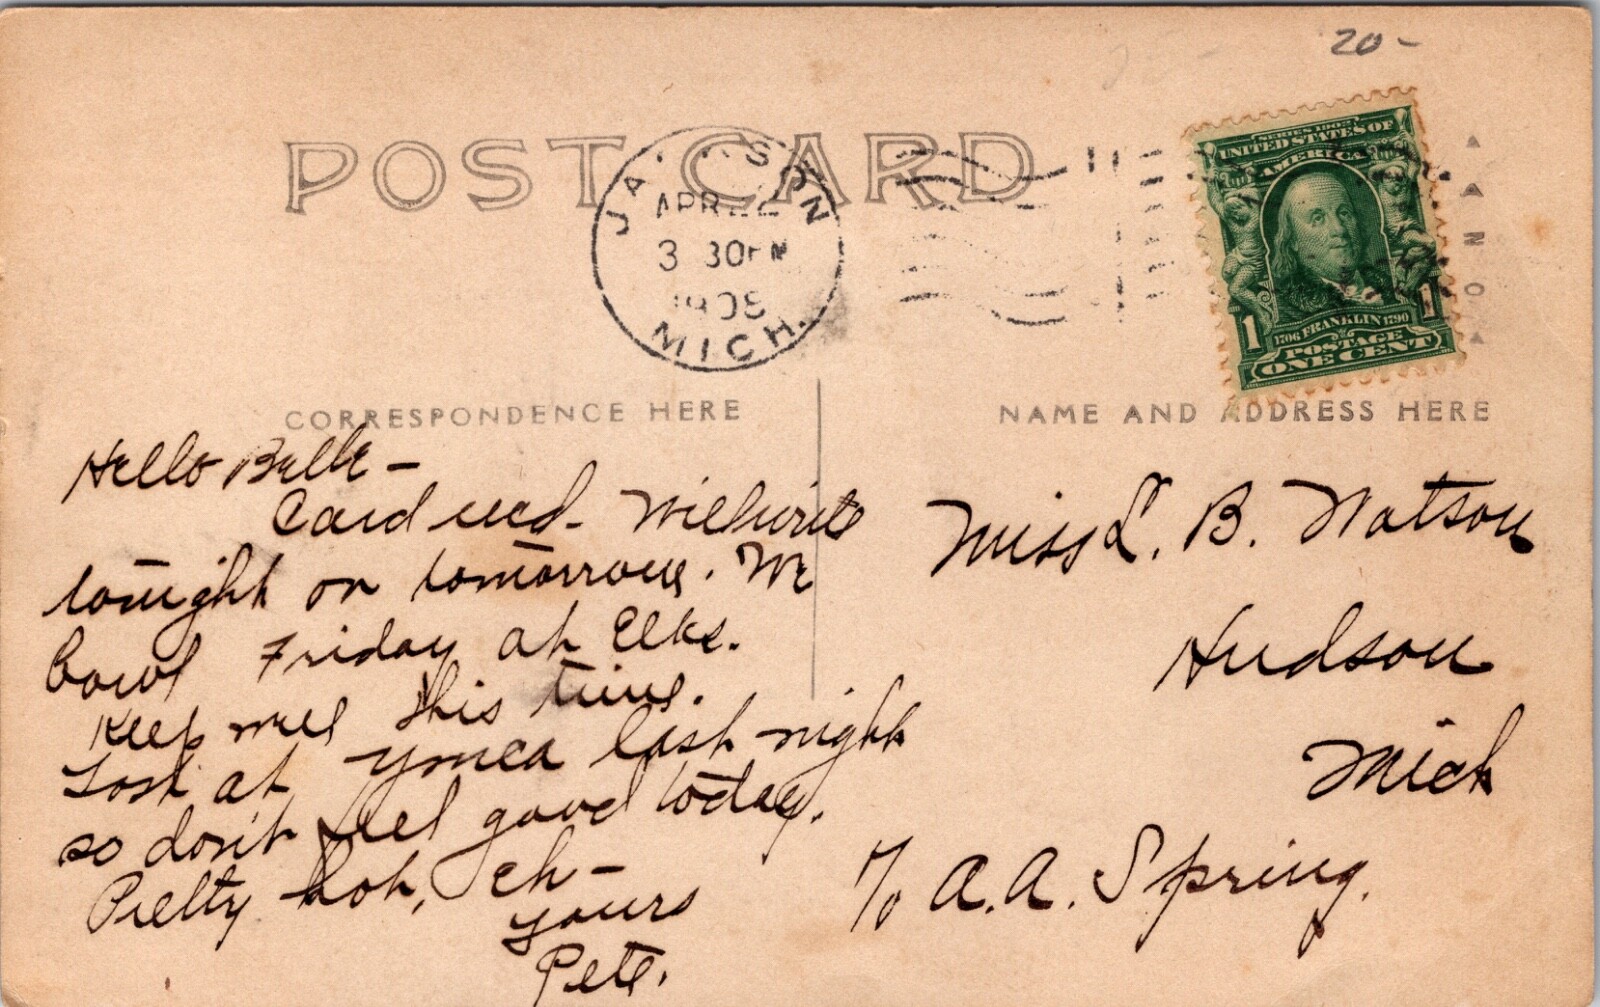 20-
POST CARD
JACKSON
APR 22
3 30 PM
1908
MICH.
SERIES 1902
UNITED STATES OF
AMERICA
1706 FRANKLIN 1790
POSTAGE
1 ONE CENT 1
CORRESPONDENCE HERE
NAME AND ADDRESS HERE
Hello Belle -
Card recd - Will write
tonight or tomorrow. We
bowl Friday at Elks.
Keep well this time.
Lost at YMCA last night
so don't feel good today.
Pretty hot, eh -
Yours
Pete.
Miss L. B. Watson
Hudson
Mich
c/o A. A. Spring.